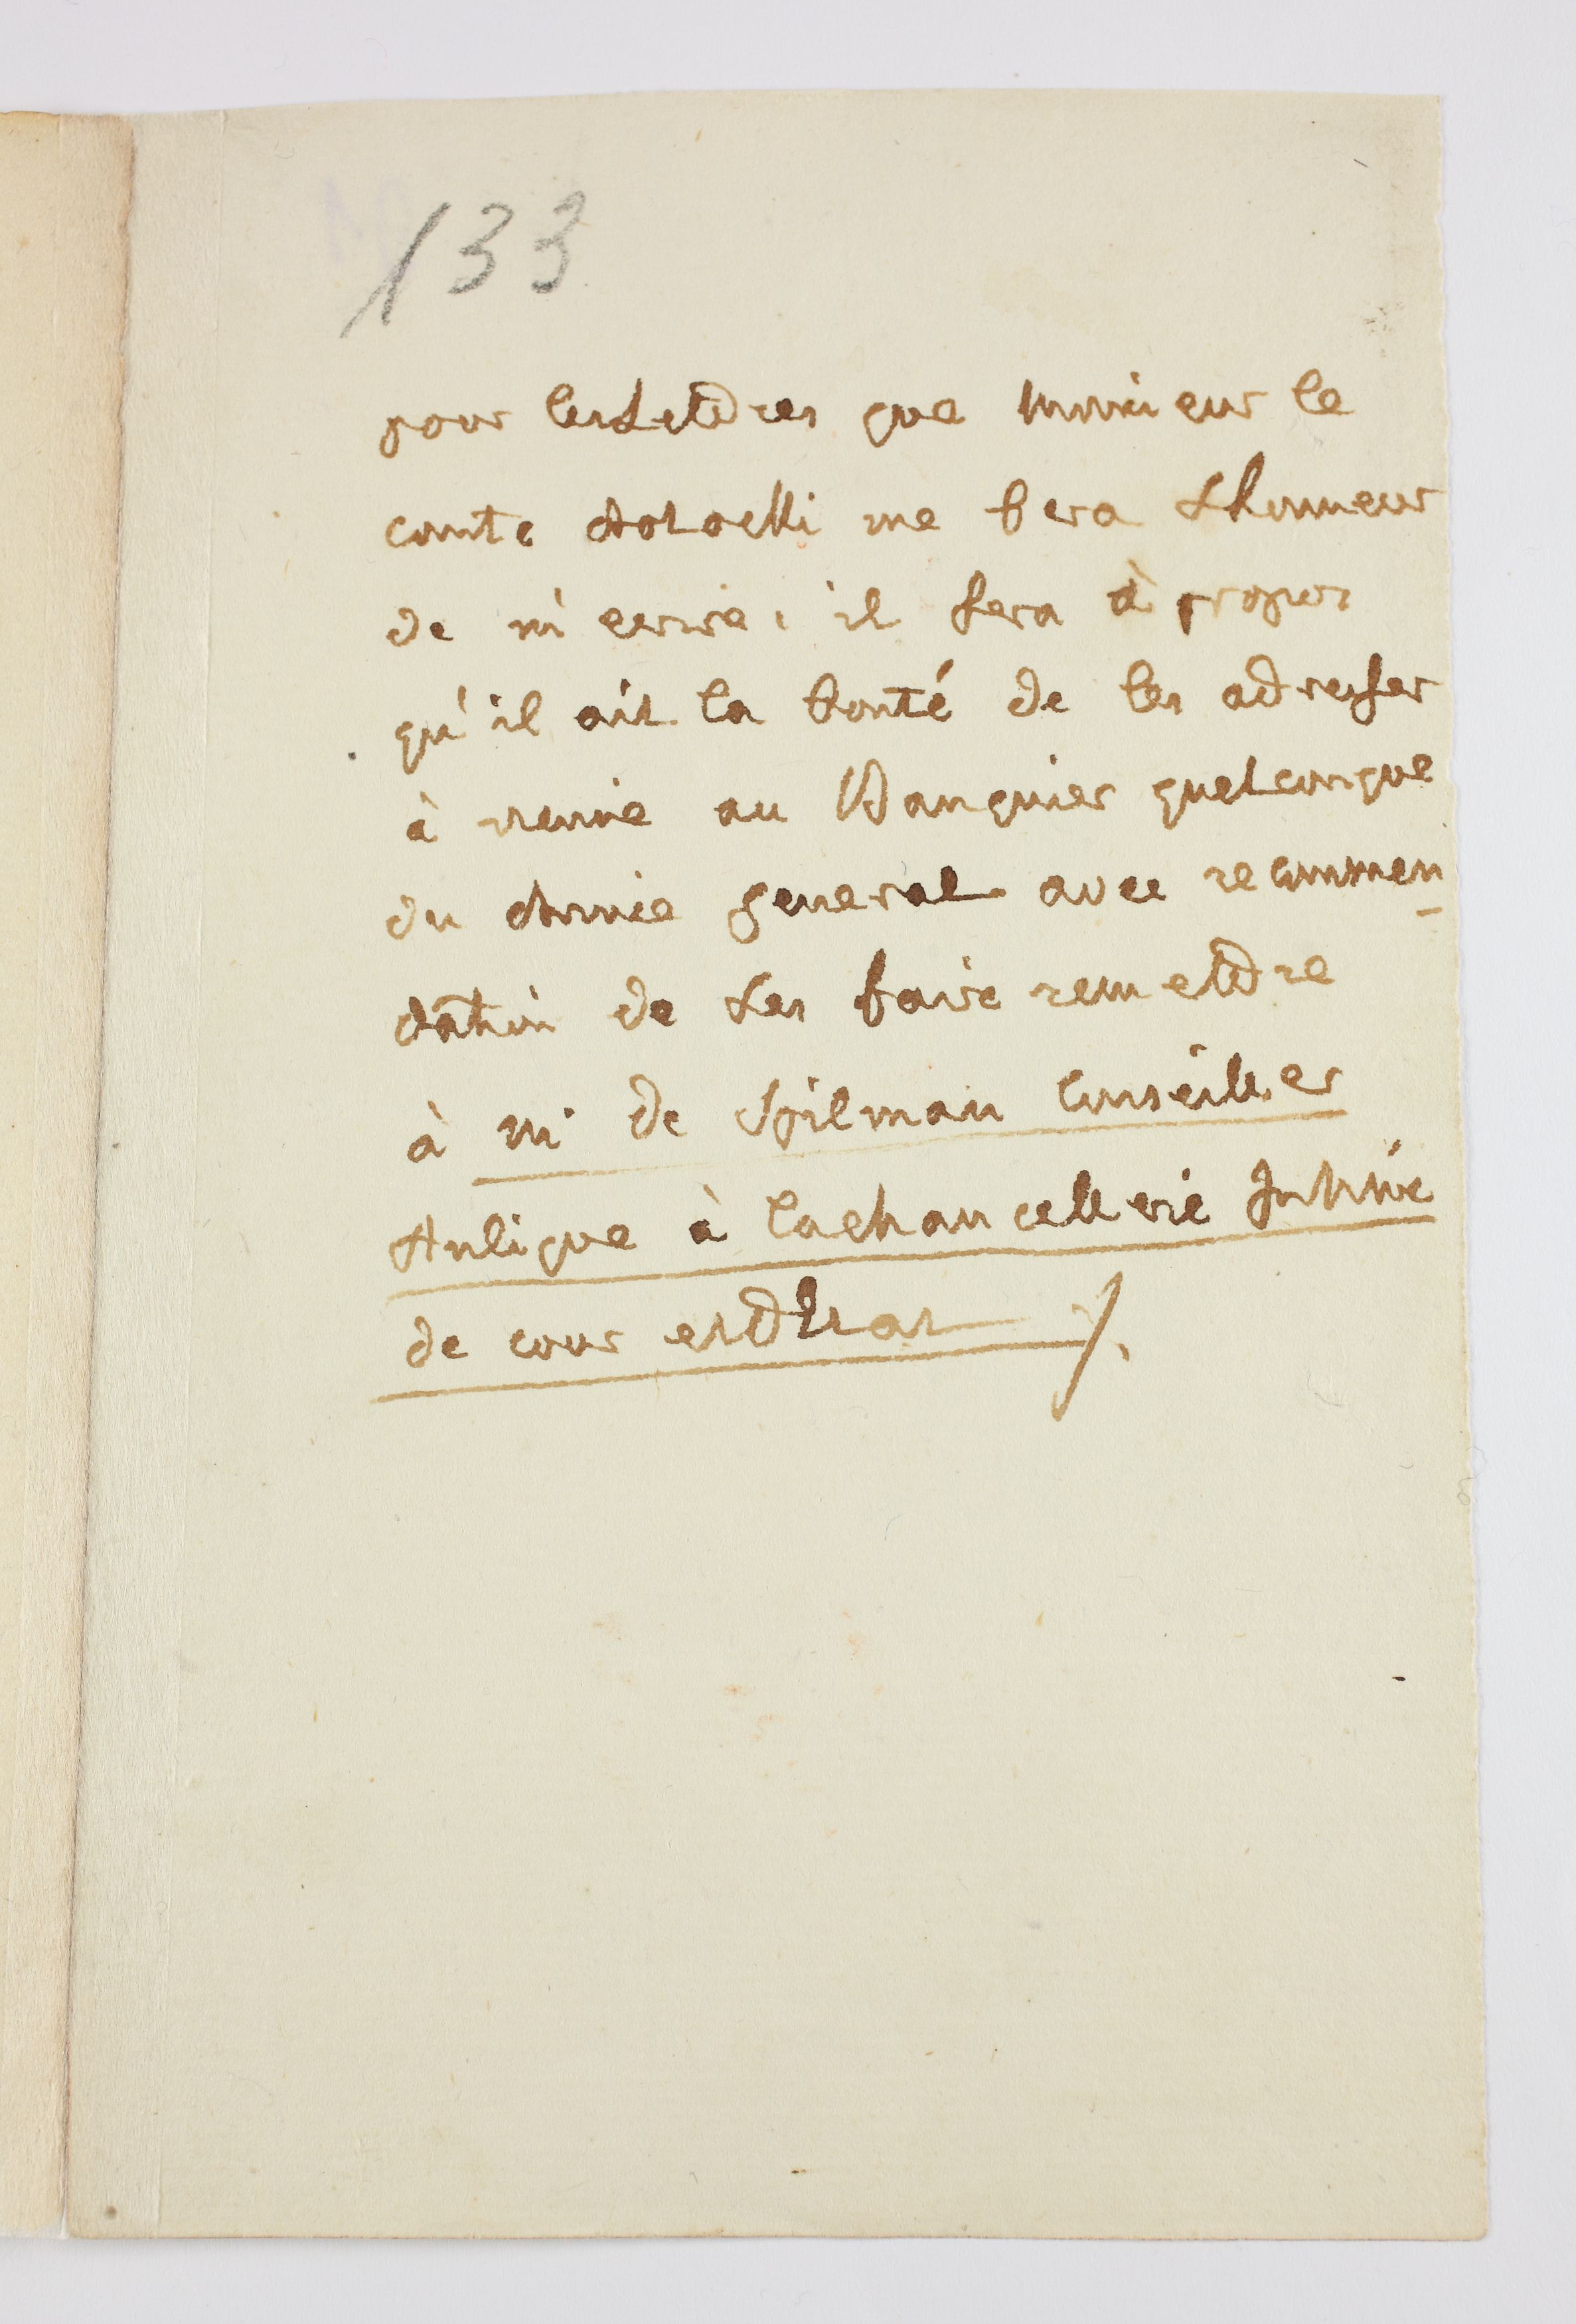 133
pour les Lettres que monsieur le
comte me fera L'honneur
de m'ecrire, il sera à propos
qu'il ait la bonté de les adresser
à vienne au Banquier quelconque
du general avec recommen
dation de Les faire remettre
à M. de Spilman Conseiller
Aulique à la chancellerie Intime
de cour et d'Etat ⁒